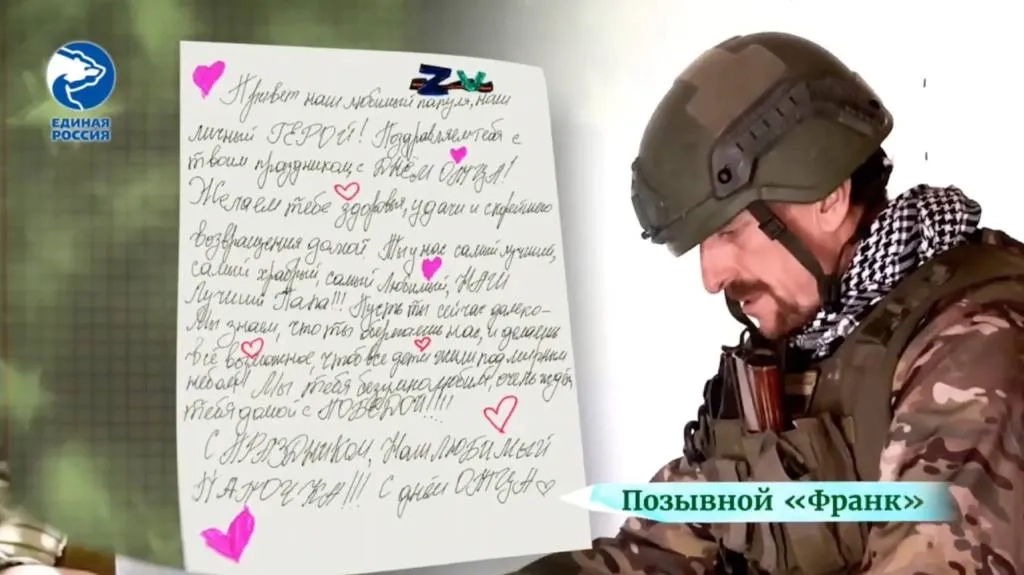 ЕДИНАЯ
РОССИЯ
ZV
Привет наш любимый папуля, наш
личный ГЕРОЙ! Поздравляем тебя с
твоим праздником, с ДНЁМ ОТЦА!
Желаем тебе здоровья, удачи и скорейшего
возвращения домой. Ты у нас самый лучший,
самый храбрый, самый Любимый, НАШ
Лучший Папа!!! Пусть ты сейчас далеко-
Мы знаем, что ты оберегаешь нас, и делаешь
всё возможное, чтоб все дети жили под мирным
небом! Мы тебя безумно любим, очень ждём
тебя домой с ПОБЕДОЙ!!!!
С ПРАЗДНИКОМ, Наш ЛЮБИМЫЙ
ПАПОЧКА!!! С днём ОТЦА
Позывной «Франк»